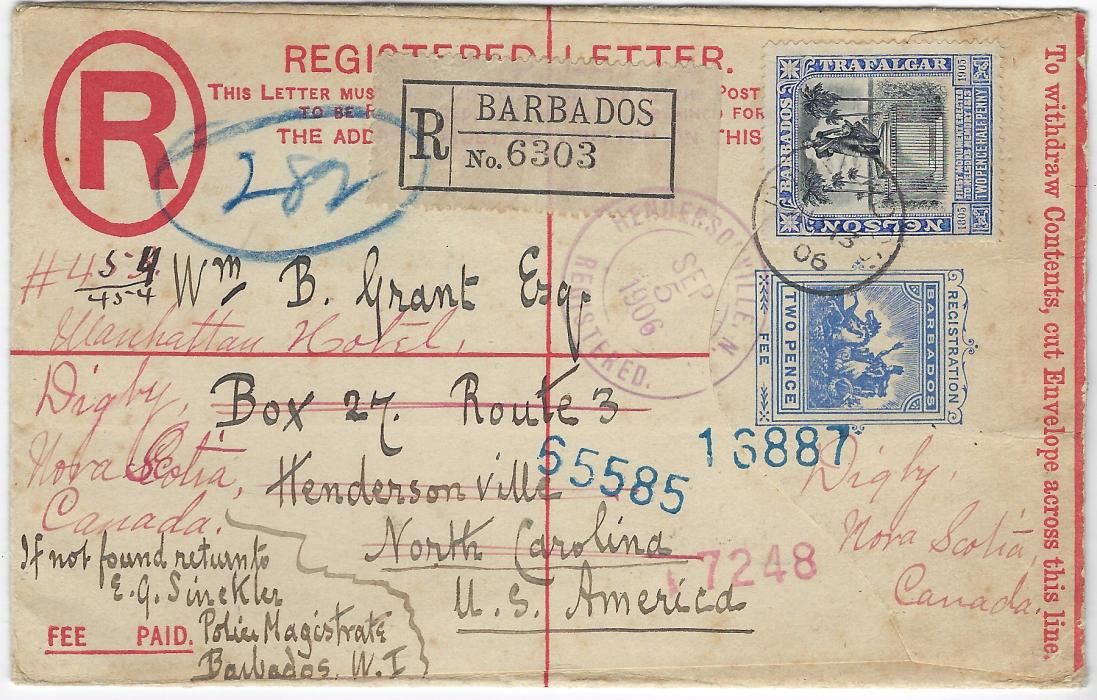 REGISTERED LETTER.
R
THIS LETTER MUS
POST
TO BE
FOR
THE ADD
THIS
R
BARBADOS
No. 6303
282
TRAFALGAR
BARBADOS
1905
1805
TWO PENCE HALFPENNY
NELSON
13
06
HENDERSONVILLE, N
SEP
5
1906
REGISTERED.
REGISTRATION
BARBADOS
TWO PENCE
FEE
454
Wm B. Grant Esq.
Manhattan Hotel,
Digby,
Nova Scotia,
Canada.
Box 27. Route 3
Hendersonville
North Carolina
U.S. America
65585
16887
7248
Digby,
Nova Scotia,
Canada.
If not found return to
E. G. Sinckler
Police Magistrate
Barbados. W. I
FEE PAID.
To withdraw Contents, cut Envelope across this line.